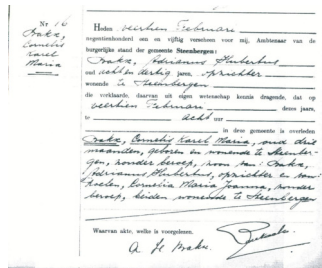 Nr 16
Brakx,
Cornelis
Karel
Maria
Heden veertien Februari
negentienhonderd aan en vijftig verscheen voor mij, Ambtenaar van de
burgerlijke stand der gemeente Steenbergen:
Brakx, Adrianus Hubertus
oud acht en dertig jaren, opzichter
wonende te Steenbergen
die verklaarde, daarvan uit eigen wetenschap kennis dragende, dat op
veertien Februari dezes jaars,
te acht uur
in deze gemeente is overleden
Brakx, Cornelis Karel Maria, oud drie
maanden, geboren en wonende te Steenber-
gen, zonder beroep, zoon van Brakx,
Adrianus Hubertus, opzichter en van
Cornelia Maria Joanna, zonder
beroep, beiden wonende te Steenbergen
Waarvan akte, welke is voorgelezen.